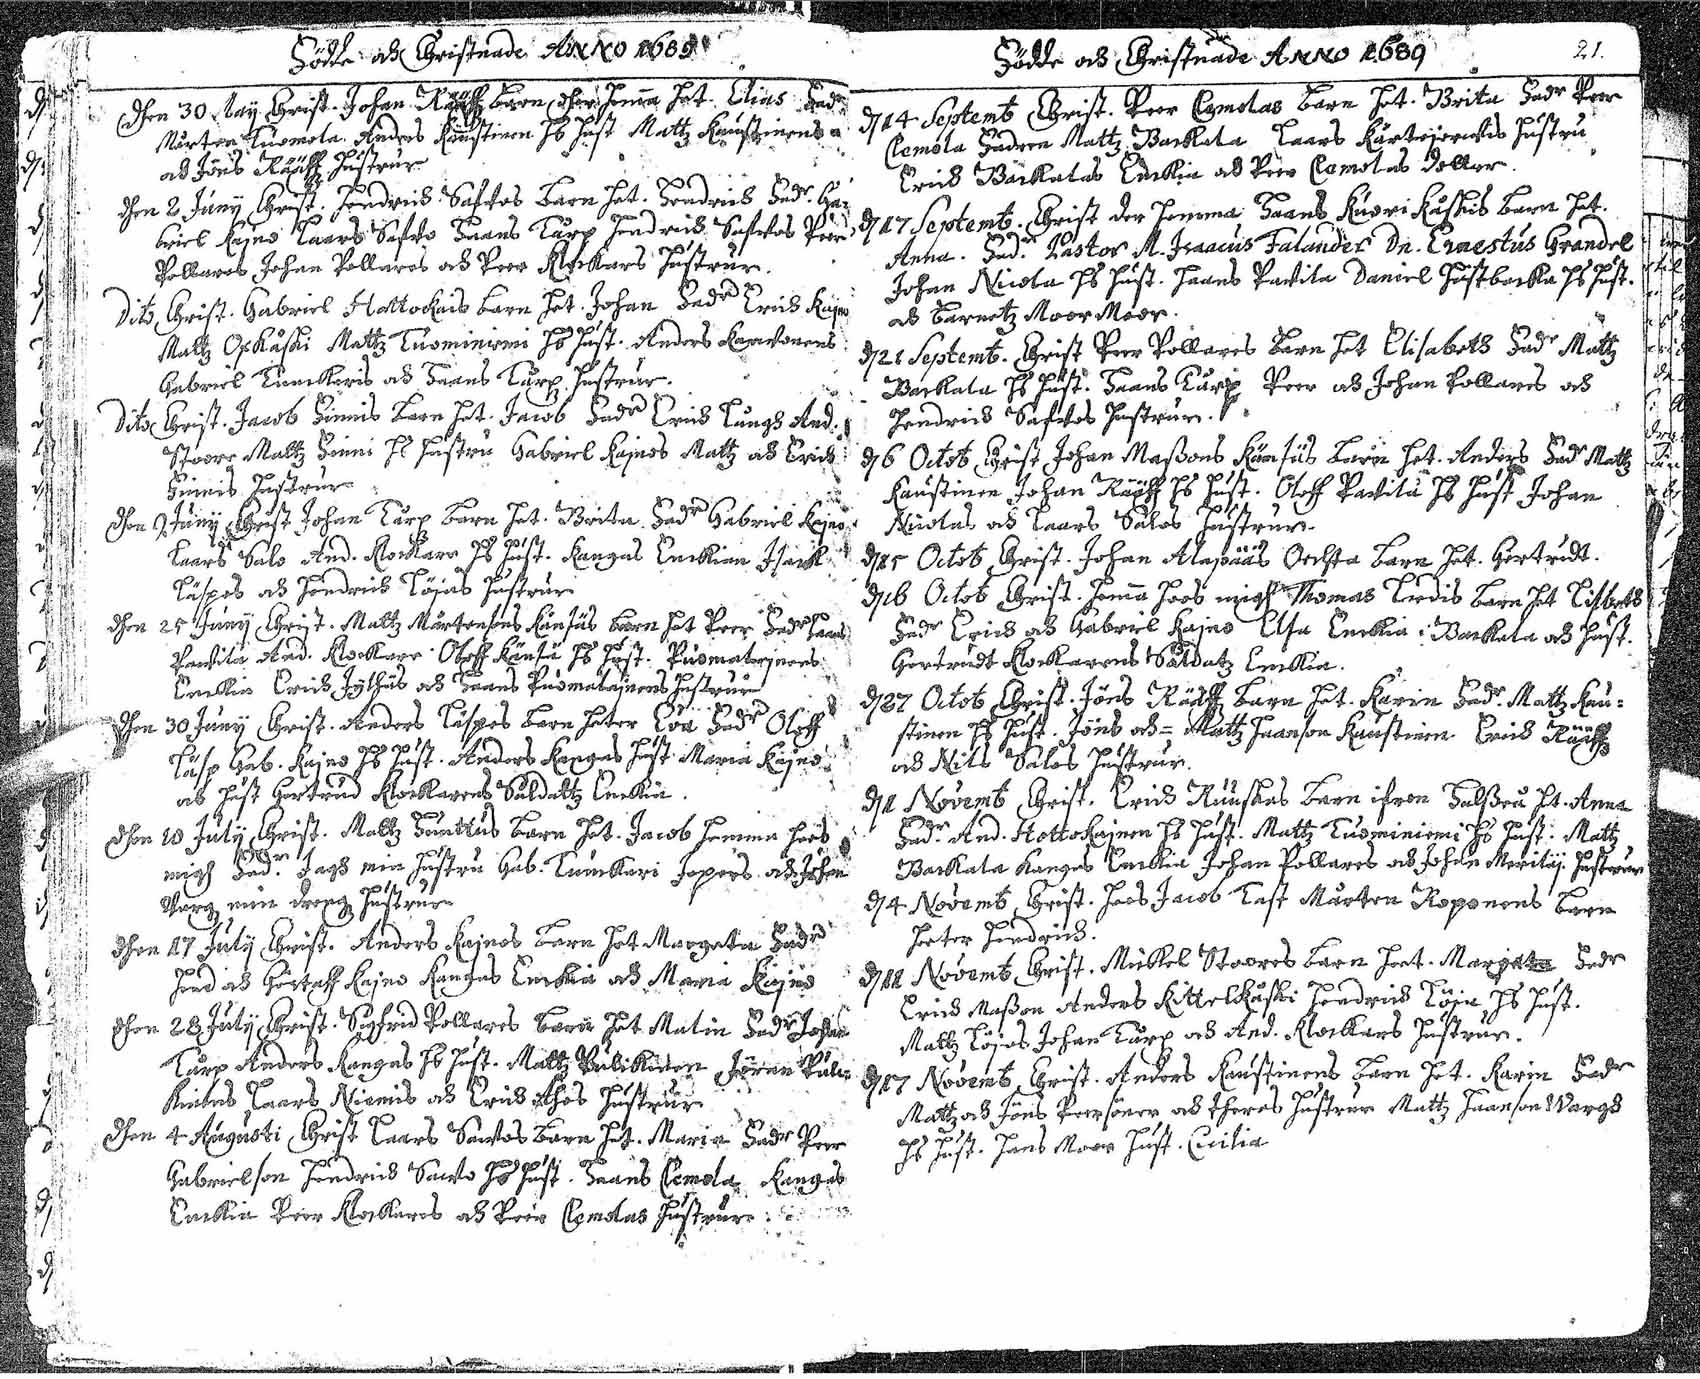 Födde och Christnade ANNO 1689
Dhen 30 May Christ. Johan Rääff barn ther hema het. Elias Fadr
Mårten Tuomola Anders Kaustinen hs hust Mattz Kaustinens
och Jöns Rääffz hustrur
Dhen 2 Juny Christ. Hendrich Saftos barn het. Hendrich Fadr. Ga-
briel Kajno Laars Safto Haans Turp Hendrich Saftos Peer
Pollares Johan Pollares och Peer Klockars hustrur.
Dito Christ. Gabriel Hottokais barn het. Johan Fadr Erich Kajno
Mattz Oskaski Mattz Tuominiemi hs hust. Anders Karwonens
Gabriel Tunckaris och Haans Turp hustrur.
Dito Christ. Jacob Finnis barn het. Jacob Fadr Erich Lungh And.
Stoore Mattz Finni hs hustru Gabriel Kajnos Mattz och Erich
Finnis hustrur
Dhen 9 Juny Christ Johan Turp barn het. Brita Fadr Gabriel Kajno
Laars Salo And. Klockare hs hust. Kangas Enckian Isack
Läspes och Hendrich Löjas hustrur
Dhen 25 Juny Christ. Mattz Mårtensons Känsäs barn het Peer Fadr Haans
Pavita And. Klockare Oloff Känsä hs hust. Puomatajnens
Enckia Erich Jylhäs och Haans Puomatajnens hustrur
Dhen 30 Juny Christ. Anders Läspes barn heter Eva Fadr Oloff
Läsp Gab. Kajno hs hust. Anders Kangas hust Maria Kajno
och hust Gertrud Klockarens Saldattz Enckia.
Dhen 10 July Christ. Mattz Huuttus barn het. Jacob hemma hoos
migh Fadr. Jagh min hustru Gab. Tunckari Jopers och Johan
Warg min drengz hustrur
Dhen 17 July Christ. Anders Kajnos barn het Margeta Fadr
Hend och Göstaff Kajno Kangas Enckia och Maria Kajno
Dhen 28 July Christ. Sigfrid Pollares barn het Malin Fadr Johan
Turp Anders Kangas hs hust. Mattz Pulkinen Jören Pul-
kinens Laars Niemis och Erich Ahos hustrur
Dhen 4 Augusti Christ Laars Sawos barn het. Maria Fadr Peer
Gabrielson Hendrich Sawo hs hust. Haans Clemola Kangas
Enckia Peer Klockares och Peer Clemolas hustrur.
Födde och Christnade ANNO 1689
21.
D 14 Septemb Christ. Peer Clemolas barn het. Brita Fadr Peer
Clemola Fadren Mattz Backala Laars Kärtejerwis hustru
Erich Backalas Enckia och Peer Clemolas dotter.
D 17 Septemb. Christ der hemma Haans Kuorikoskis barn het.
Anna. Fad. Pastor M. Isaacus Falander Dn. Ernestus Grandel
Johan Nicola hs hust. Haans Pavita Daniel Hästbacka hs hust.
och barnetz Moor Moor.
D 21 Septemb. Christ Peer Pollares barn het Elisabeth Fadr Mattz
Backala hs hust. Haans Turp Peer och Johan Pollares och
Hendrich Saftos hustrur.
D 6 Octob Christ Johan Maßons Känsäs barn het. Anders Fadr Mattz
Kaustinen Johan Rääff hs hust. Oloff Pavita hs hust Johan
Nicolas och Laars Salos hustrur.
D 15 Octob Christ. Johan Alapääs Oechta barn het. Gertrudt.
D 16 Octob Christ. hema hoos migh Thomas Lirdis barn het Lisbeth
Fadr Erich och Gabriel Kajno Elsa Enckia Backala och hust.
Gertrudt Klockarens Saldatz Enckia.
D 27 Octob Christ. Jöns Rääff barn het. Karin Fadr. Mattz Kau-
stinen hs hust. Jöns och Mattz Haanson Kaustinen Erich Rääffz
och Nils Salos hustrur.
D 1 Novemb Christ. Erich Ruuskas barn ifron Halßou ht. Anna
Fadr. And. Hottokajnen hs hust. Mattz Tuominiemi hs hust. Mattz
Backala Kangas Enckia Johan Pollares och Johan Meritäj hustrur
D 4 Novemb Christ. hoos Jacob Tast Mårten Roponens barn
heter Hendrich.
D 11 Novemb Christ. Mickel Stoores barn heet. Margeta Fadr
Erich Maßon Anders Kittelkåski Hendrich Löja hs hust.
Mattz Löjas Johan Turp och And. Klockars hustrur.
D 17 Novemb Christ. Anders Kaustinens barn het. Karin Fadr
Mattz och Jöns Peersöner och theres hustrur Mattz Haanson Wargh
hs hust. Hans Moor hust. Cicilia